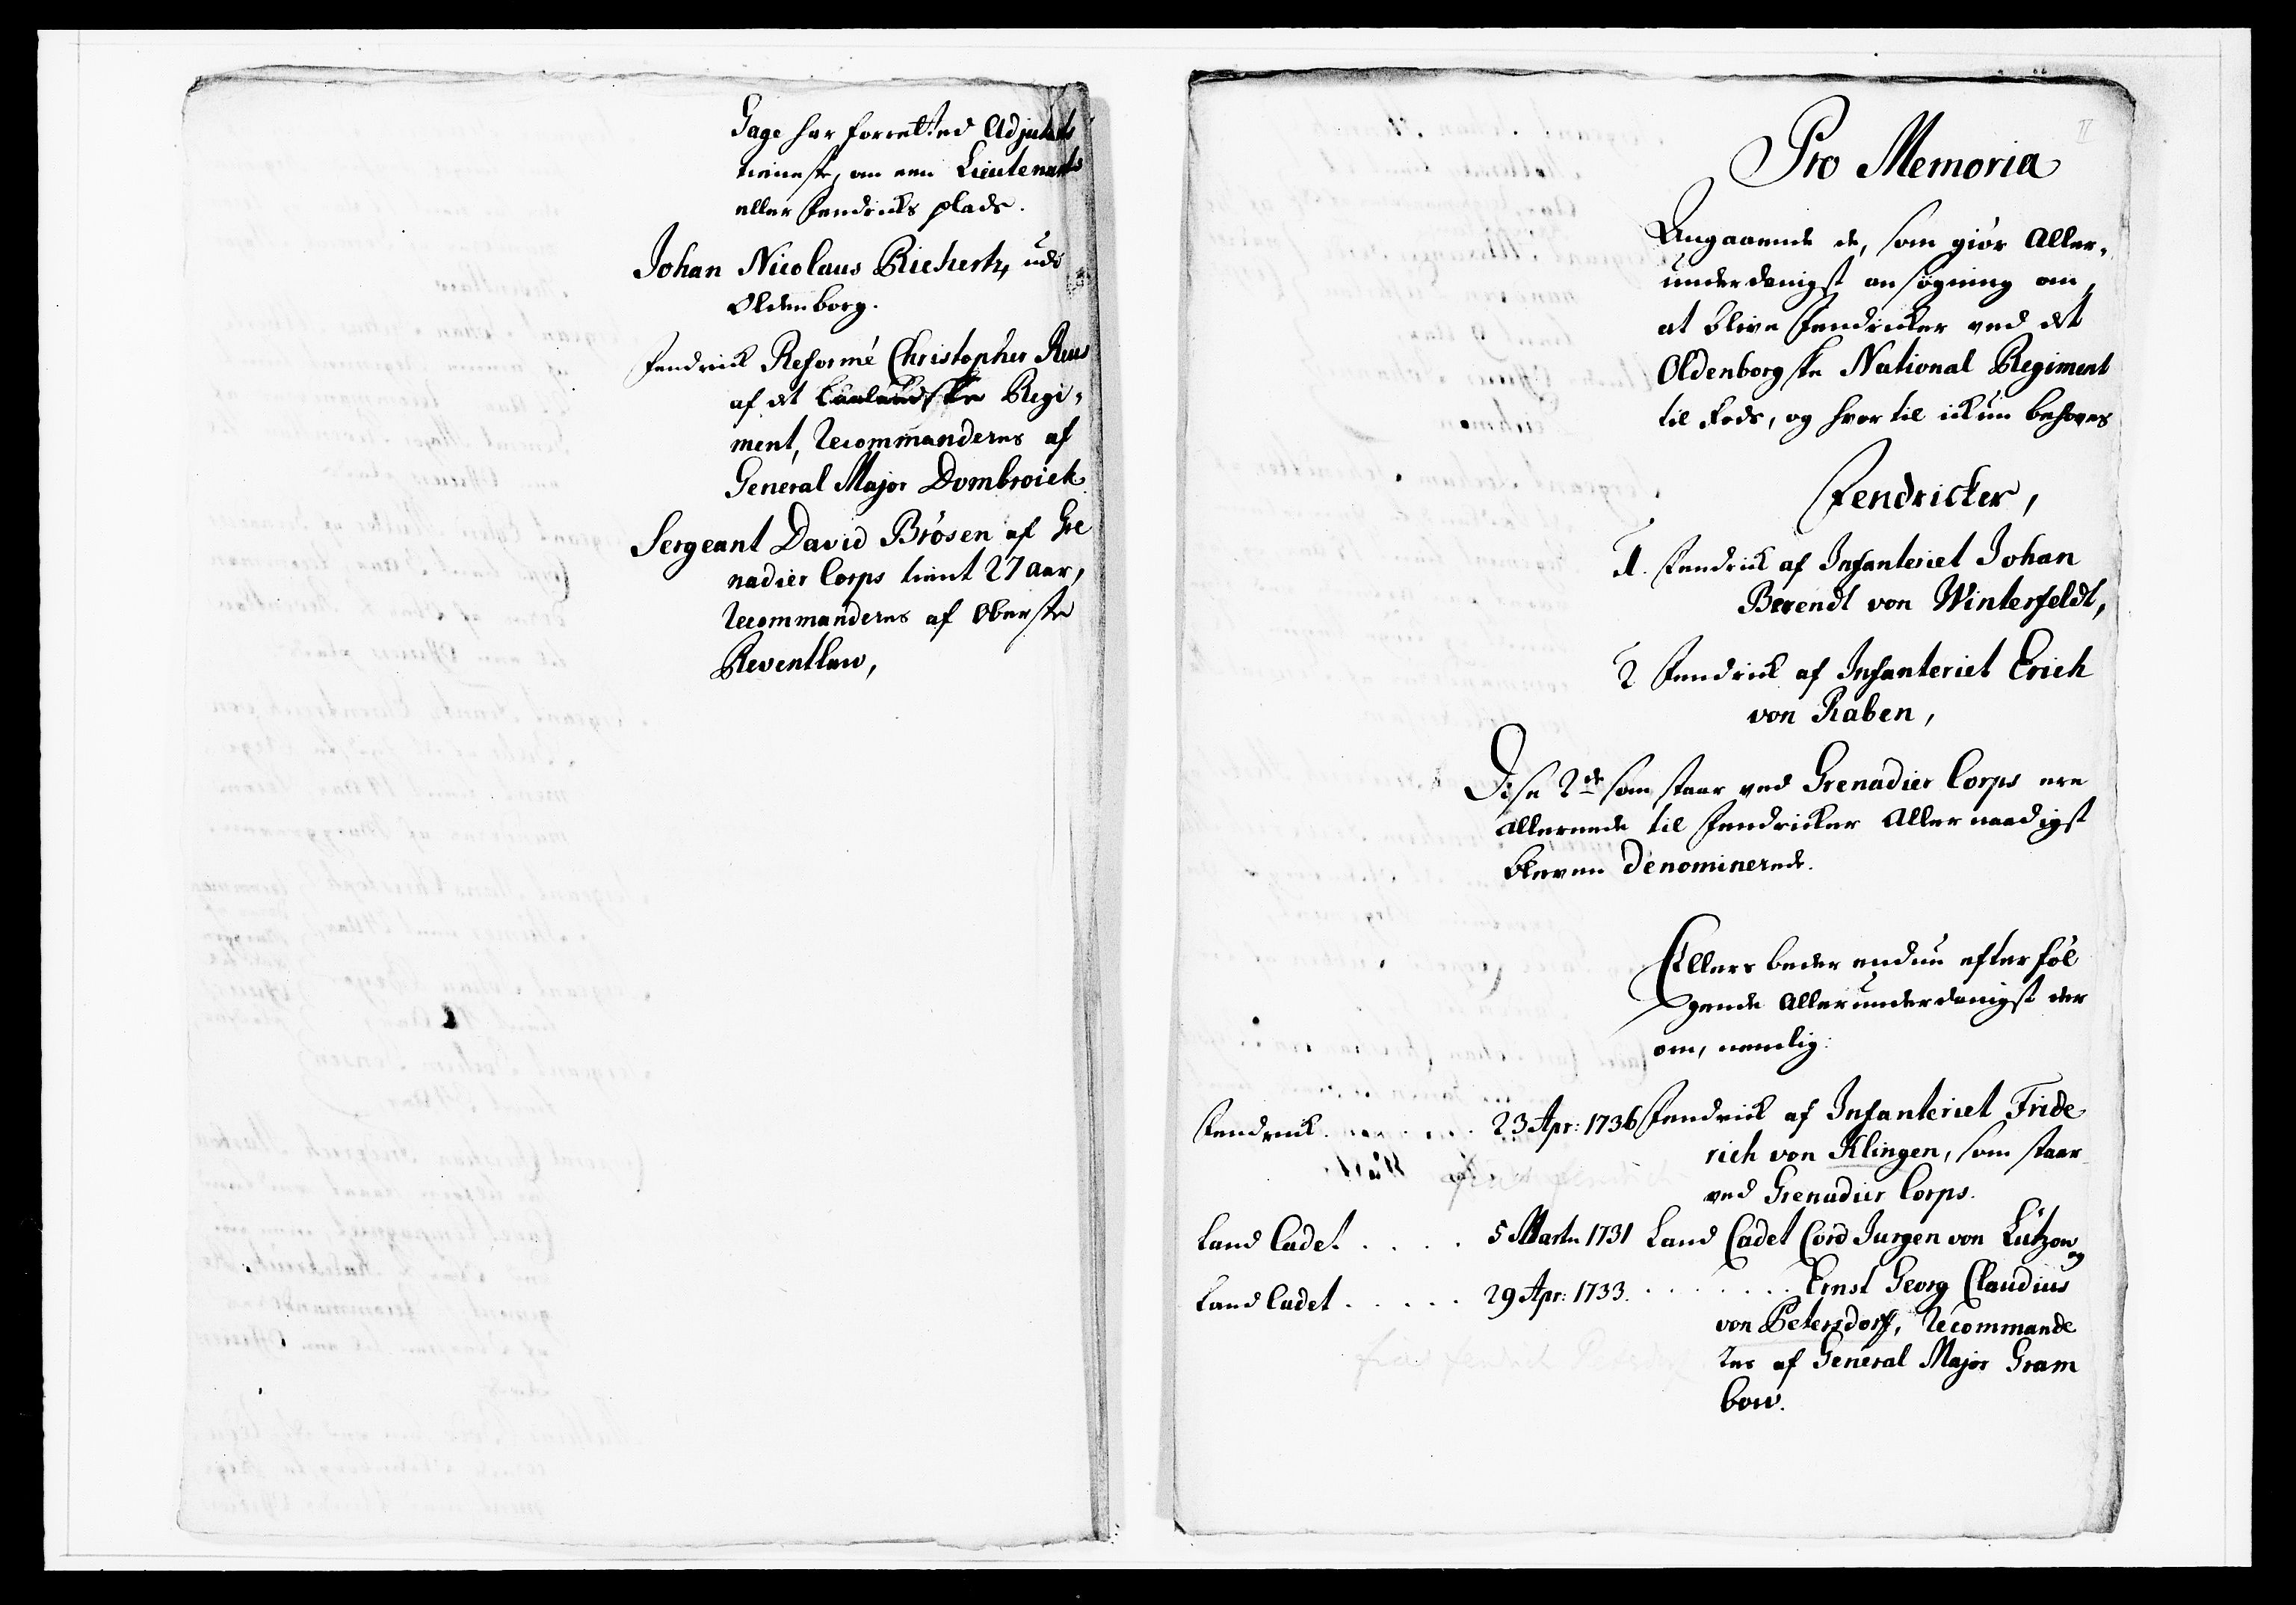 Gage har forretted Adjutants
tieneste, om een Lieutenants
eller Fendricks plads.
Johan Nicolaus Richertz, udi
Oldenborg.
Fendrick Reformé Christopher Reus
af det Laalandske Regi-
ment, Recommanderes af
General Major Dombroick
Sergeant David Brösen af Gre
nadier Corps tient 27 aar,
Recommanderes af Oberste
Reventlau,
Pro Memoria
Angaaende de, som giör Aller-
underdanigst ansögning om,
at blive Fendricker ved det
Oldenborgske National Regiment
til Fods, og hvor til ickun behöves
Fendricker,
1. Fendrick af Infanteriet Johan
Berendt von Winterfeldt,
2 Fendrick af Infanteriet Erich
von Raben,
Disse 2de som staar ved Grenadier Corps ere
allereede til Fendricker Allernaadigst
bleven Denominerede.
Ellers beder endnu efterföl
gende Allerunderdanigst der
om, nemlig:
Fendrick . . . . . . 23 Apr: 1736 Fendrick af Infanteriet Fride
rich von Klingen, som staar
ved Grenadier Corps.
Land Cadet . . . . 5 Martii 1731 Land Cadet Cord Jurgen von Lützow
og
Land Cadet . . . . . 29 Apr: 1733. . . . . . . . Ernst Georg Claudius
von Petersdorff, Recommande
res af General Major Gram
bow.